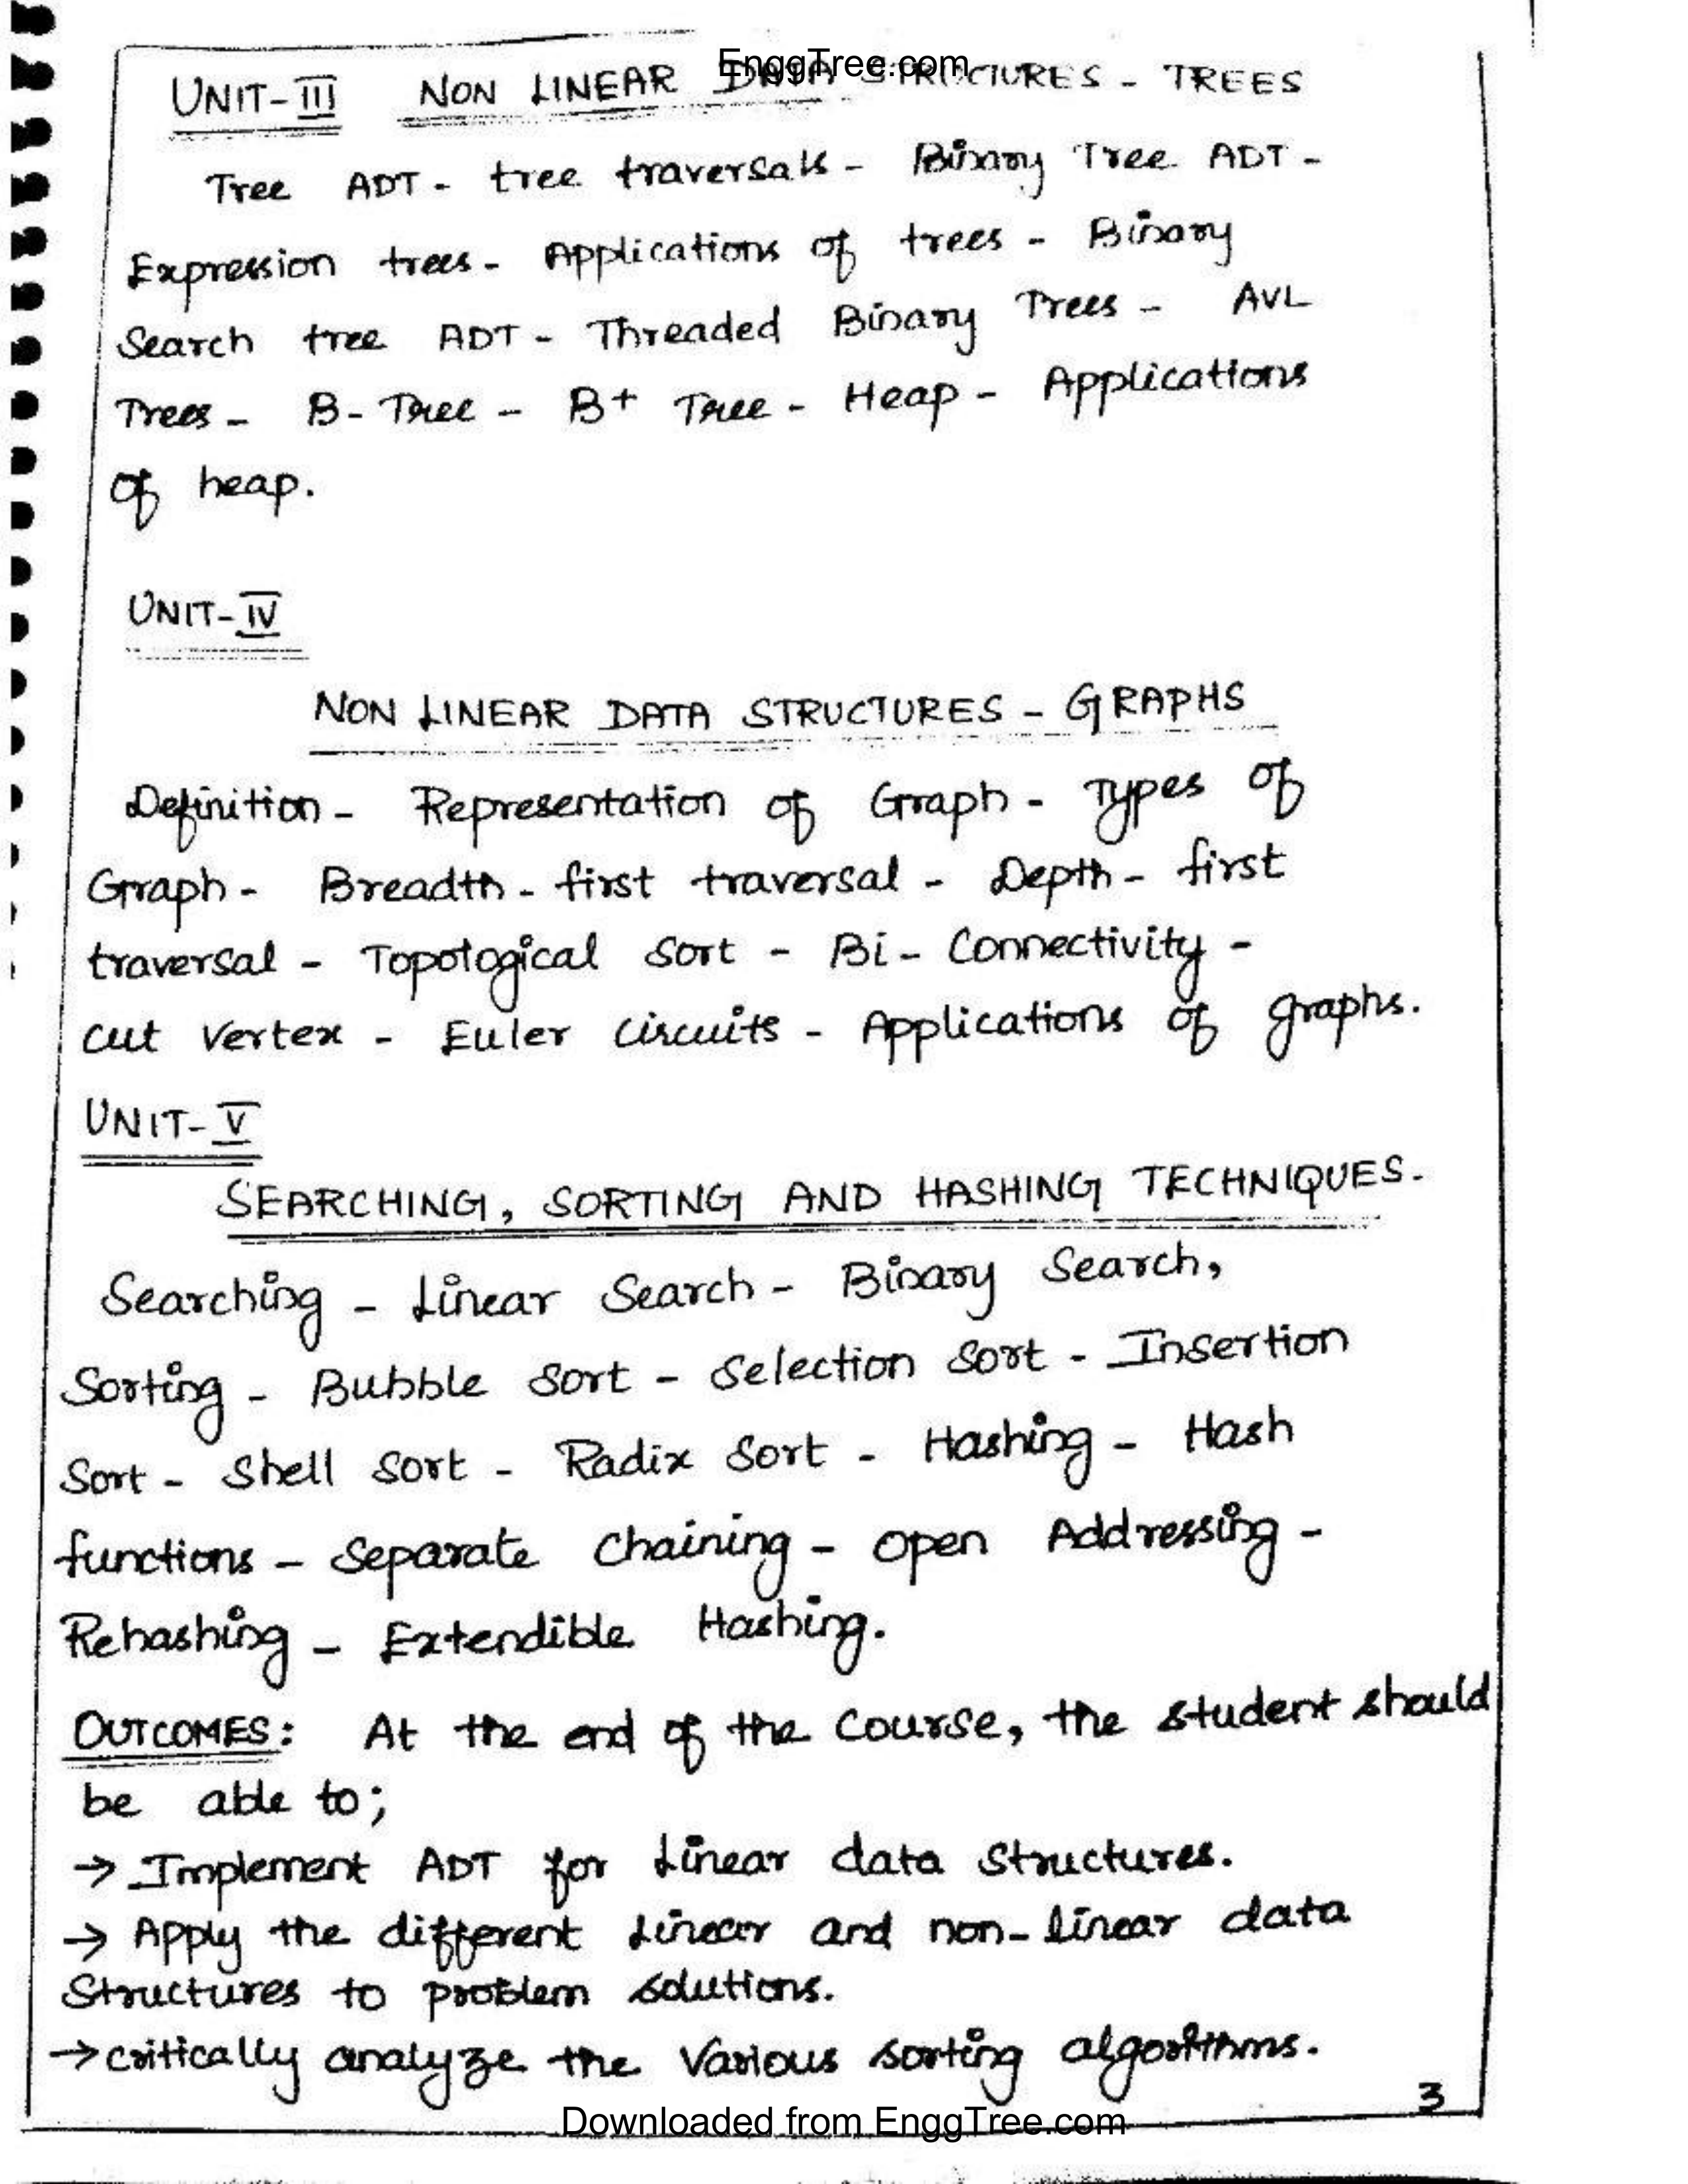 EnggTree.com
UNIT-III NON LINEAR DATA STRUCTURES - TREES
Tree ADT - tree traversals - Binary Tree ADT -
Expression trees - Applications of trees - Binary
Search tree ADT - Threaded Binary Trees - AVL
Trees - B-Tree - B+ Tree - Heap - Applications
of heap.
UNIT-IV
NON LINEAR DATA STRUCTURES - GRAPHS
Definition - Representation of Graph - Types of
Graph - Breadth-first traversal - Depth-first
traversal - Topological Sort - Bi-Connectivity -
cut vertex - Euler circuits - Applications of graphs.
UNIT-V
SEARCHING, SORTING AND HASHING TECHNIQUES.
Searching - Linear Search - Binary Search,
Sorting - Bubble Sort - Selection Sort - Insertion
Sort - Shell Sort - Radix Sort - Hashing - Hash
functions - Separate Chaining - open Addressing -
Rehashing - Extendible Hashing.
OUTCOMES: At the end of the course, the student should
be able to;
→ Implement ADT for Linear data structures.
→ Apply the different Linear and non-linear data
Structures to problem solutions.
→ critically analyze the various sorting algorithms.
3
Downloaded from EnggTree.com